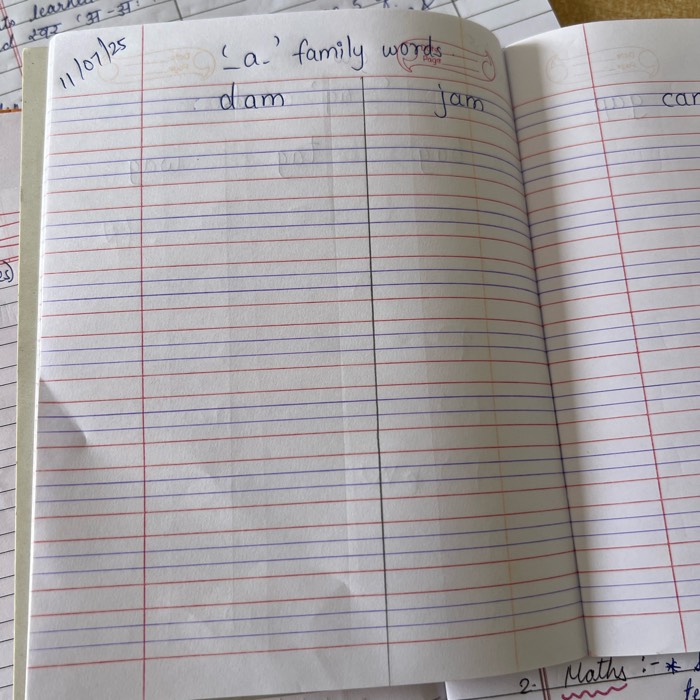 to learn
स्वर 'अ - अः'
11/07/25
'-a-' family words.
dam jam
car
2. Maths :- *